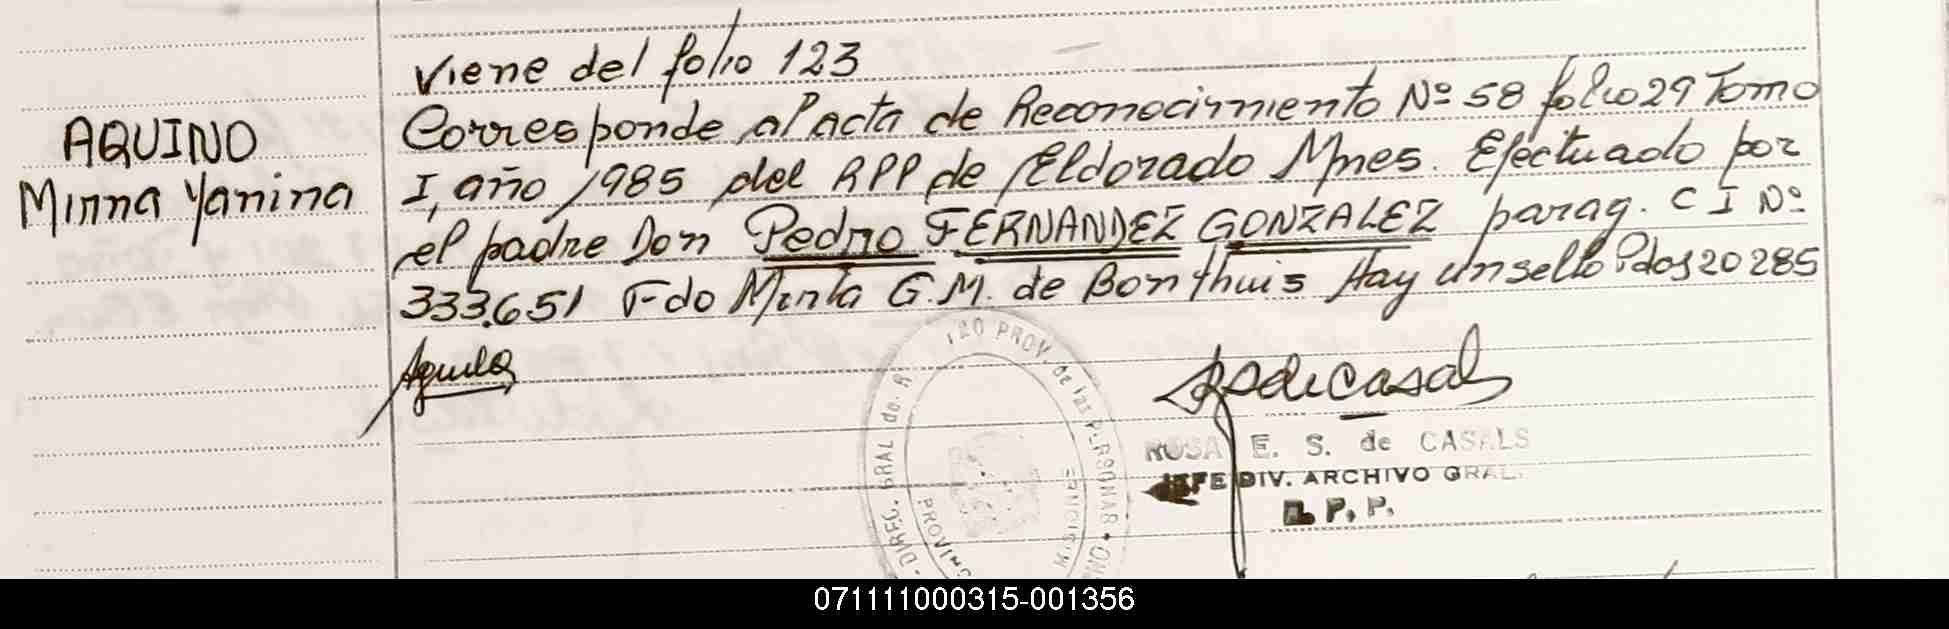 Viene del folio 123
AQUINO
Mirna Yanina
Corresponde al acta de Reconocimiento Nº 58 folio 29 Tomo
I, año 1985 del RPP de Eldorado Mnes. Efectuado por
el padre Don Pedro FERNANDEZ GONZALEZ parag. C I Nº
333.651 Fdo Mirta G.M. de Bonthuis Hay un sello Pdos 20285
ROSA E. S. de CASALS
JEFE DIV. ARCHIVO GRAL.
R. P. P.
DIREC. GRAL
PROV. de las PERSONAS
071111000315-001356